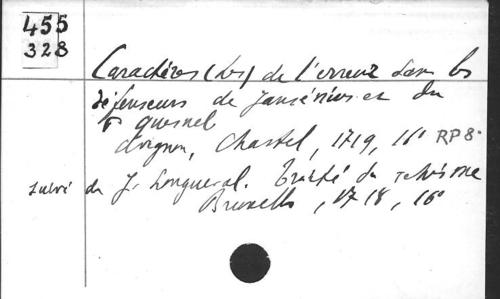 455
328
Caractères (les) de l'erreur dans les
défenseurs de Jansénius et du
P Quesnel
Avignon, Chastel, 1719, 16° RP8°
suivi de J. Longueval. Traité du schisme
Bruxelles, 1718, 16°